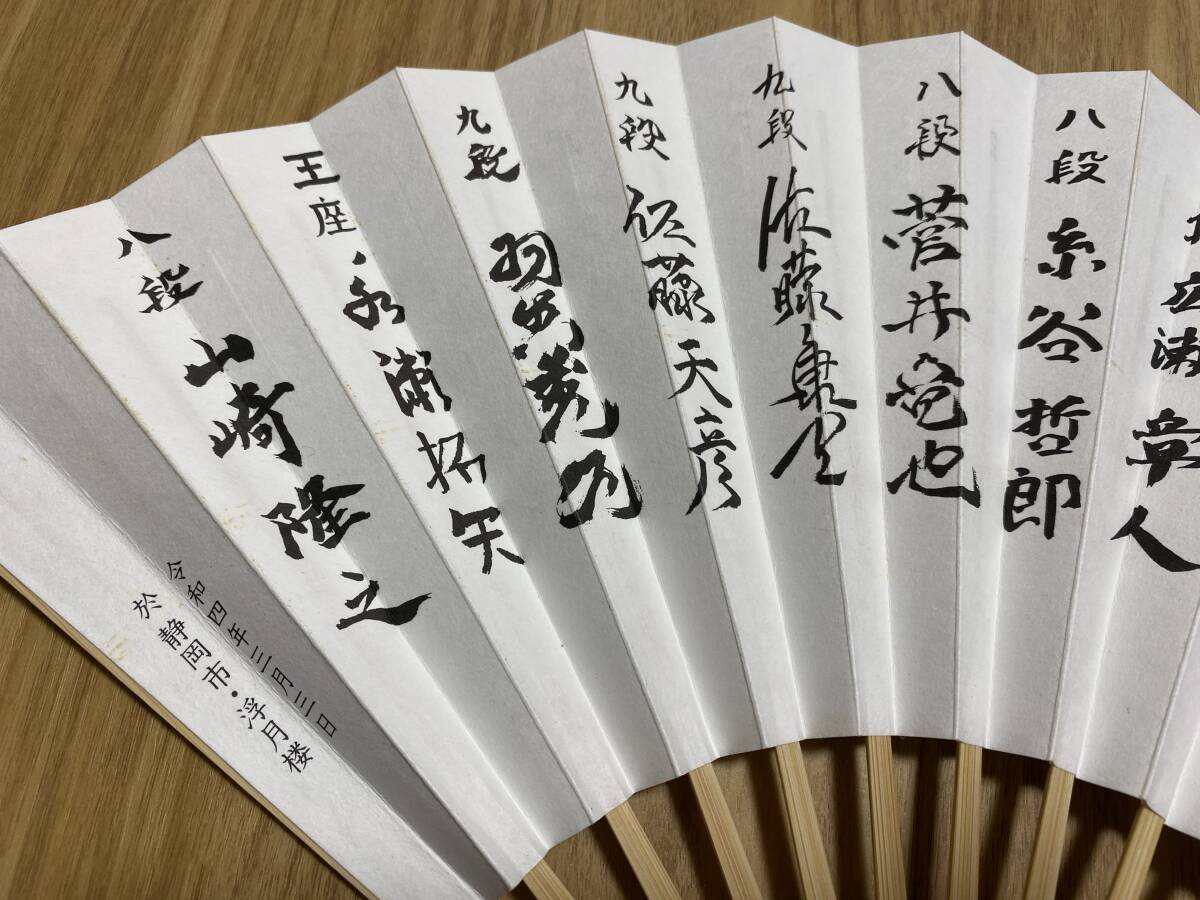 広瀬章人
八段 糸谷哲郎
八段 菅井竜也
九段 佐藤康光
九段 佐藤天彦
九段 羽生善治
王座 永瀬拓矢
八段 山崎隆之
令和四年三月三日
於 静岡市・浮月楼